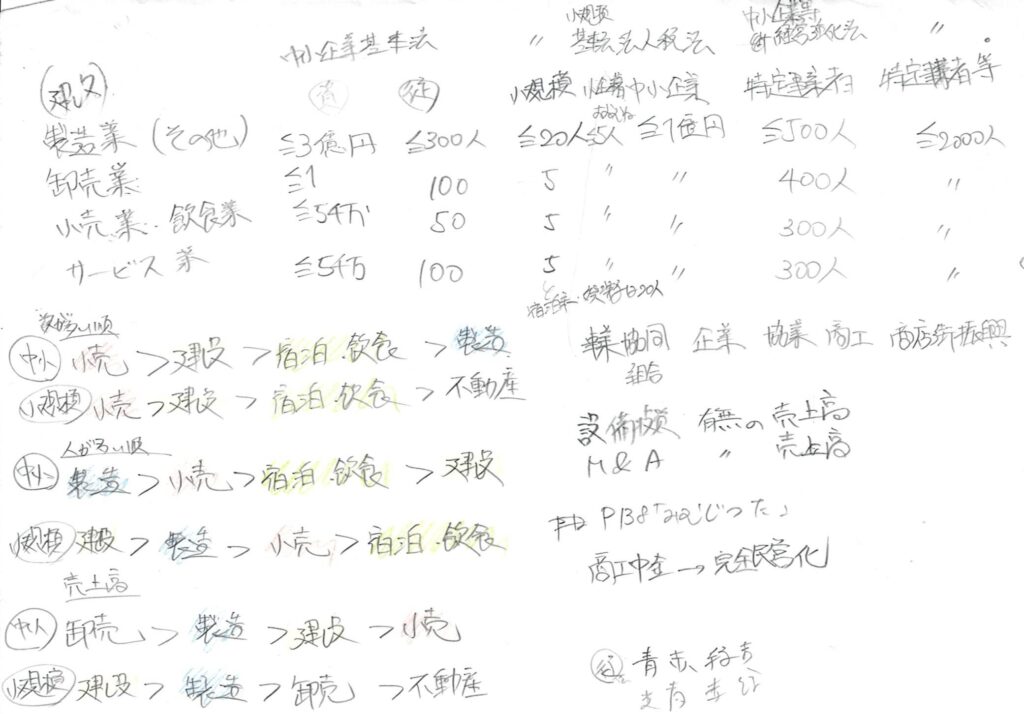 中小企業基本法 〃 小規模基本法 法人税法 中小企業等経営強化法 〃
(建設) 資 従 小規模 小企業 中小企業 特定事業者 特定事業者等
製造業 (その他) ≦3億円 ≦300人 ≦20人 おおむね≦5人 ≦1億円 ≦500人 ≦2000人
卸売業 ≦1 100 5 〃 〃 400人 〃
小売業・飲食業 ≦5千万 50 5 〃 〃 300人 〃
サービス業 ≦5千万 100 5 〃 〃 300人 〃
宿泊業・娯楽は20人
数が多い順
中小 小売>建設>宿泊・飲食>製造
小規模 小売>建設>宿泊・飲食>不動産
人が多い順
中小 製造>小売>宿泊・飲食>建設
小規模 建設>製造>小売>宿泊・飲食
売上高
中小 卸売>製造>建設>小売
小規模 建設>製造>卸売>不動産
事業協同組合 企業 協業 商工 商店街振興
設備投資 有無の売上高
M&A 〃 売上高
P138「
商工中金→完全民営化
青